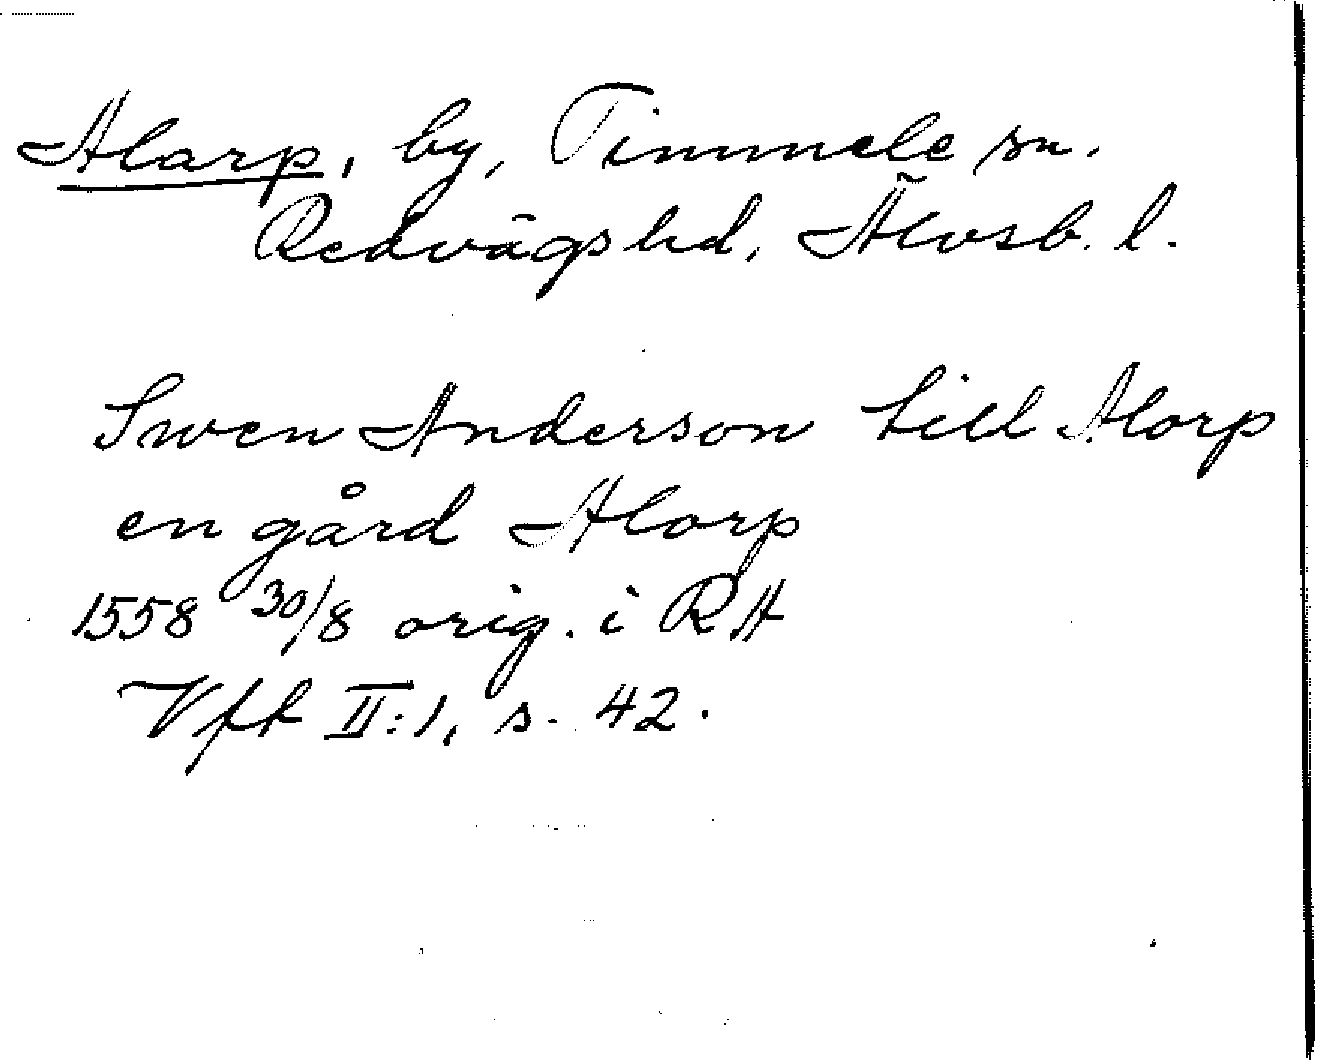 Alarp, by, Timmele sn.
Redvägs hd, Älvsb. l.
Swen Anderson till Alorp
en gård Alorp
1558 30/8 orig. i RA
Vft II:1, s. 42.